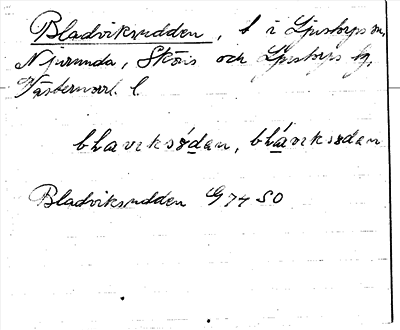 Bladviksudden, l i Ljustorps sn,
Njurunda, Sköns och Ljustorps tg,
Västernorrl. l.
blavɩksódan, bláviksodan
Bladviksudden G 74 SO